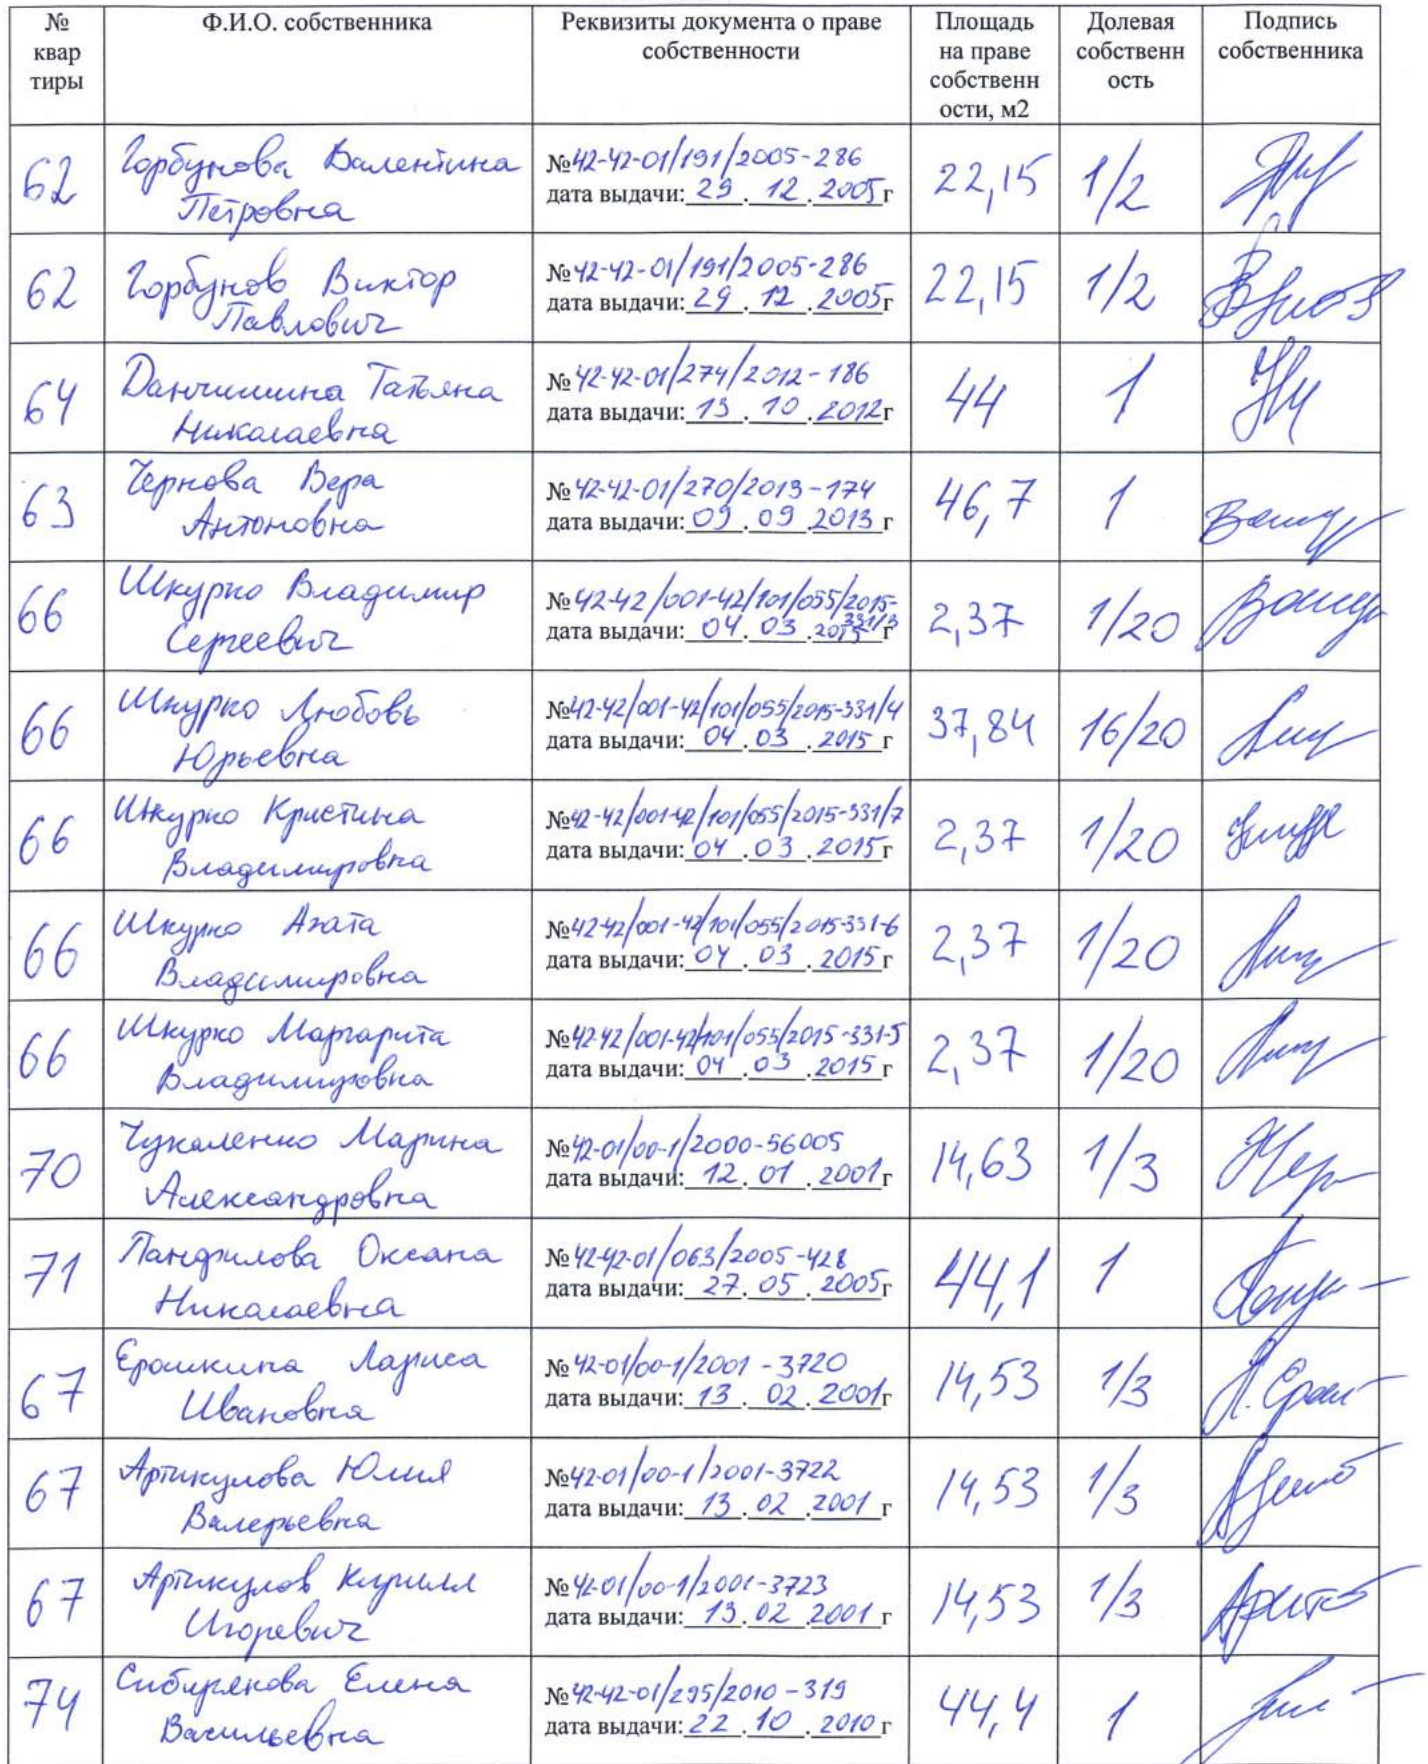 № квар тиры Ф.И.О. собственника Реквизиты документа о праве собственности Площадь на праве собственн ости, м2 Долевая собственн ость Подпись собственника
62 Горбунова Валентина Петровна №42-42-01/191/2005-286 дата выдачи: 29.12.2005г 22,15 1/2
62 Горбунов Виктор Павлович №42-42-01/191/2005-286 дата выдачи: 29.12.2005г 22,15 1/2
64 Данчишина Татьяна Николаевна №42-42-01/274/2012-186 дата выдачи: 13.10.2012г 44 1
63 Чернова Вера Антоновна №42-42-01/270/2013-174 дата выдачи: 09.09.2013г 46,7 1
66 Шкурко Владимир Сергеевич №42-42/001-42/101/055/2015-331/3 дата выдачи: 04.03.2015г 2,37 1/20
66 Шкурко Любовь Юрьевна №42-42/001-42/101/055/2015-331/4 дата выдачи: 04.03.2015г 37,84 16/20
66 Шкурко Кристина Владимировна №42-42/001-42/101/055/2015-331/7 дата выдачи: 04.03.2015г 2,37 1/20
66 Шкурко Агата Владимировна №42-42/001-42/101/055/2015-331-6 дата выдачи: 04.03.2015г 2,37 1/20
66 Шкурко Маргарита Владимировна №42-42/001-42/101/055/2015-331-5 дата выдачи: 04.03.2015г 2,37 1/20
70 Чукаленко Марина Александровна №42-01/00-1/2000-56005 дата выдачи: 12.01.2001г 14,63 1/3
71 Панфилова Оксана Николаевна №42-42-01/063/2005-428 дата выдачи: 27.05.2005г 44,1 1
67 Ерошкина Лариса Ивановна №42-01/00-1/2001-3720 дата выдачи: 13.02.2001г 14,53 1/3
67 Артикулова Юлия Валерьевна №42-01/00-1/2001-3722 дата выдачи: 13.02.2001г 14,53 1/3
67 Артикулов Кирилл Игоревич №42-01/00-1/2001-3723 дата выдачи: 13.02.2001г 14,53 1/3
74 Сибирякова Елена Васильевна №42-42-01/295/2010-319 дата выдачи: 22.10.2010г 44,4 1